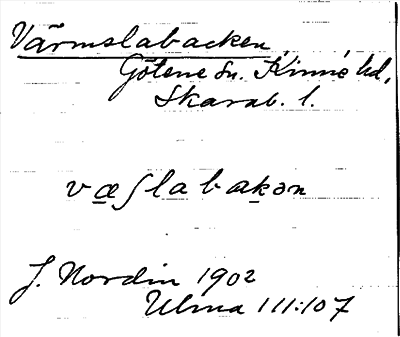 Värmslabacken,
Götene Sn. Kinne hd,
Skarab. l.
væʃlabakən
J. Nordin 1902
Ulma 111:107